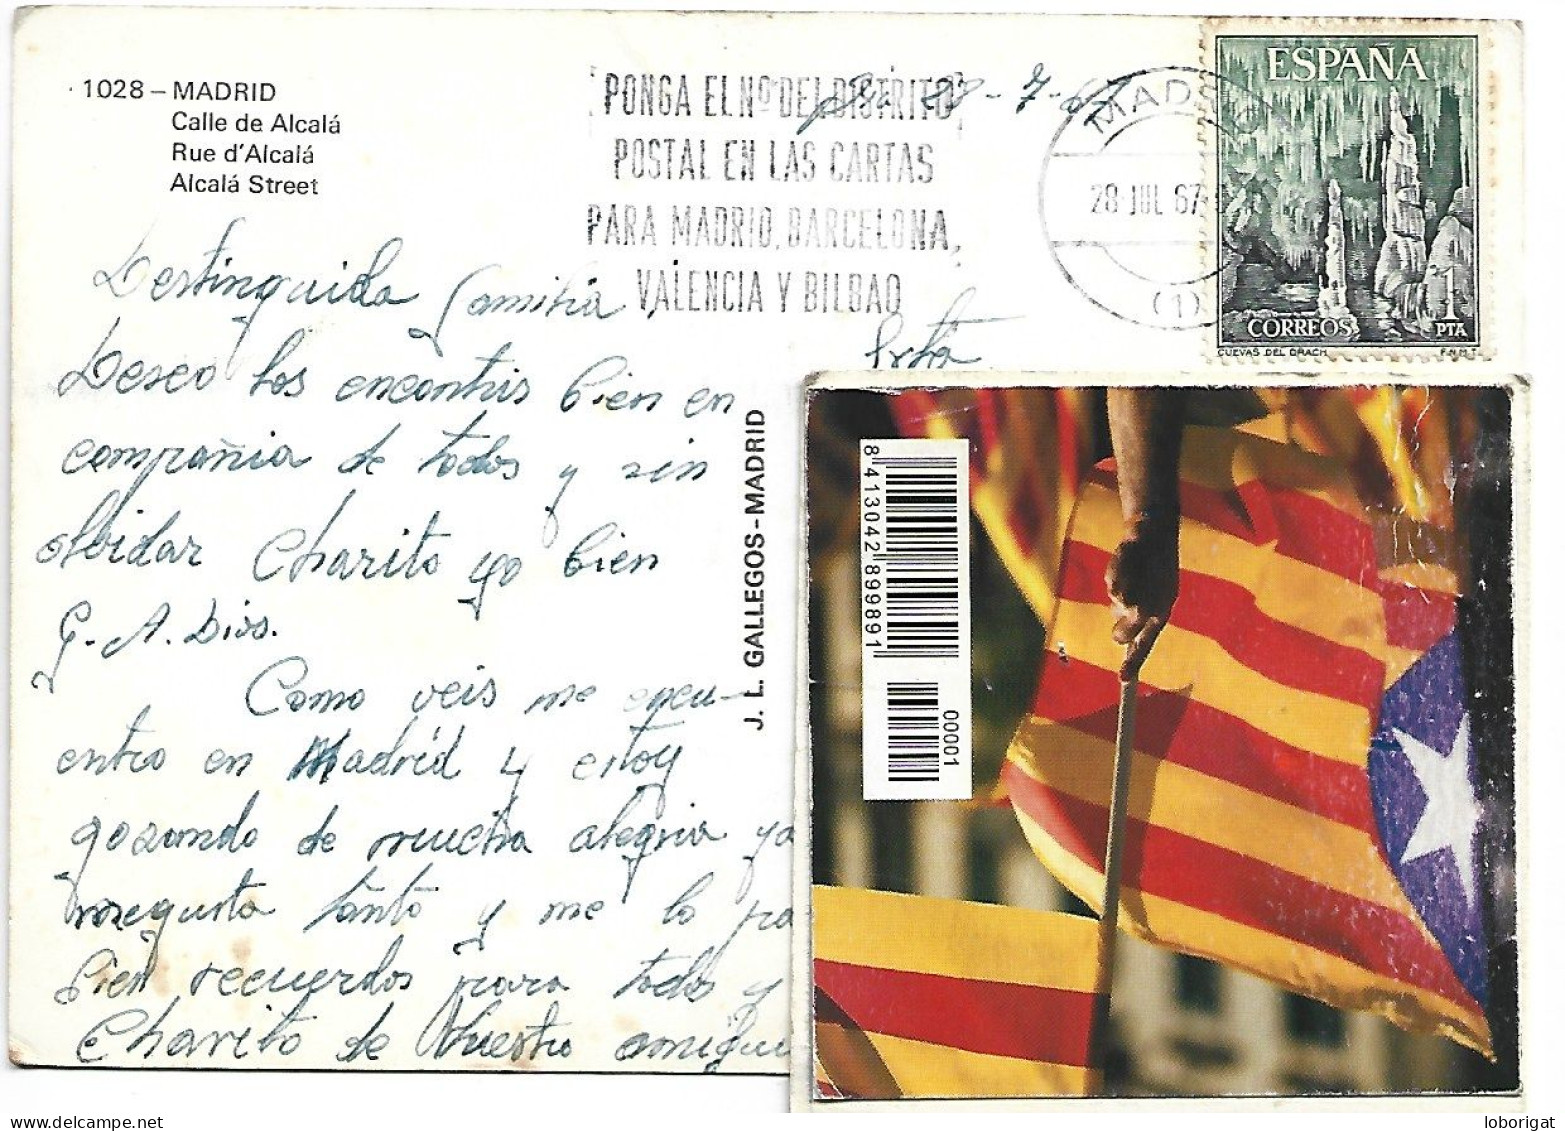 1028 – MADRID
Calle de Alcalá
Rue d'Alcalá
Alcalá Street
PONGA EL Nº DEL DISTRITO
POSTAL EN LAS CARTAS
PARA MADRID, BARCELONA,
VALENCIA Y BILBAO
28-7-67
MADRID
28 JUL 67
(1)
ESPAÑA
CORREOS
1
PTA
CUEVAS DEL DRACH
F.N.M.T.
Destinguida familia
Deseo los encontris bien en
compañia de todos y sin
olbidar Charito yo bien
G. A. Dios.
Como veis me encu-
entro en Madrid y estoy
gozando de mucha alegria ya
megusta tanto y me lo pa
bien recuerdos para todos y
Charito de Vuestro amigui
Srta
J. L. GALLEGOS-MADRID
8 413042 899891
00001
www.delcampe.net
loborigat